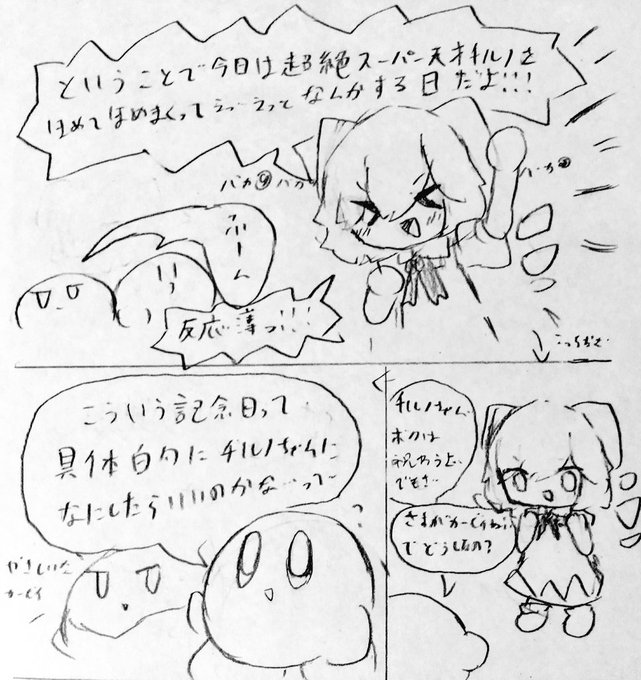 ということで今日は超絶スーパー天才チルノを
ほめてほめまくってえっーえっとなんかする日だよ!!!
バカ⑨バカ
バーカ⑨
ふーん
反応薄っ!!!
チルノちゃん
ボクは
祝おうと
でもさ…
さすがカービィね!
でどうしたの?
こういう記念日って
具体的にチルノちゃんに
なにしたらいいのかな…って…
?
やさしいな
カービィ